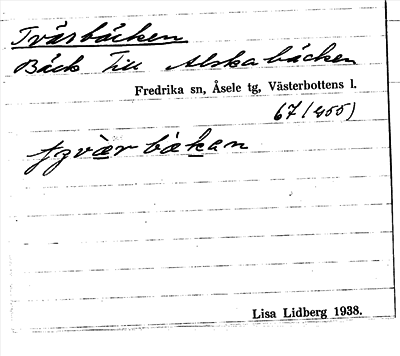 Tvärbäcken
Bäck till Alskabäcken
Fredrika sn, Åsele tg, Västerbottens l.
bäkan
Lisa Lidberg 1938.